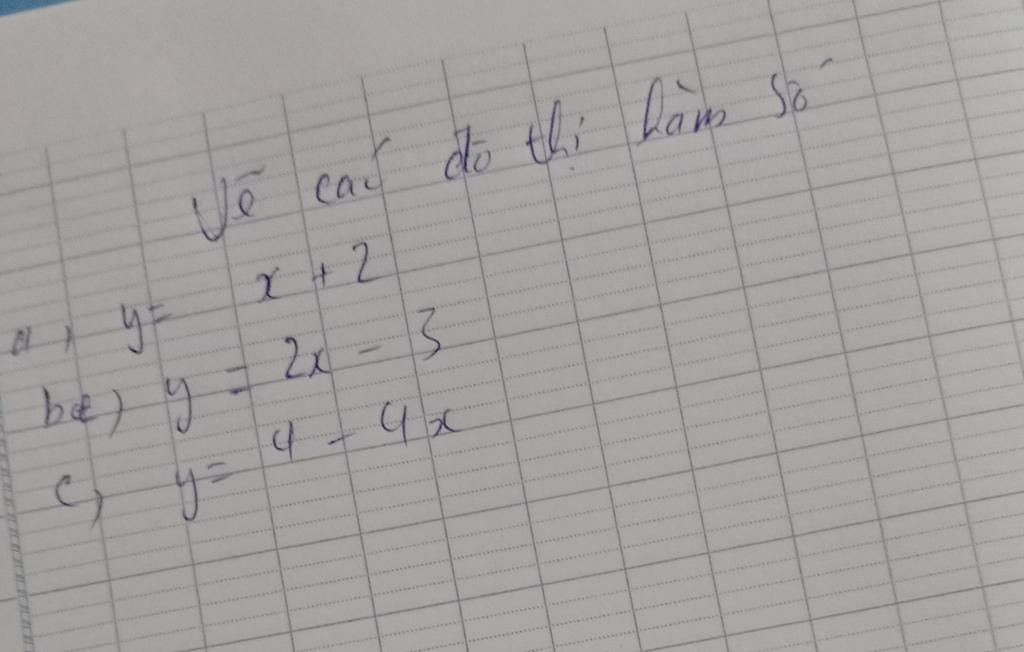 Vẽ các đồ thị hàm số
a, y= x + 2
b) y = 2x - 3
c, y= 4 - 4x